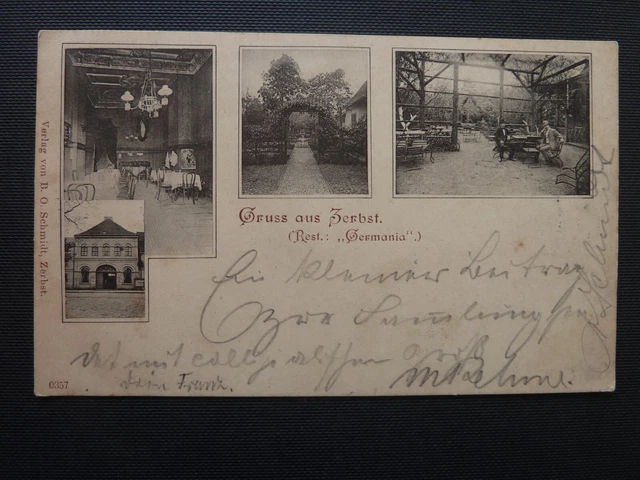 Verlag von B. O. Schmidt, Zerbst.
Gruss aus Zerbst.
(Rest.: „Germania“.)
Ein kleiner Beitrag
Zur Sammlung
det mit Gruß
dein Franz.
0357